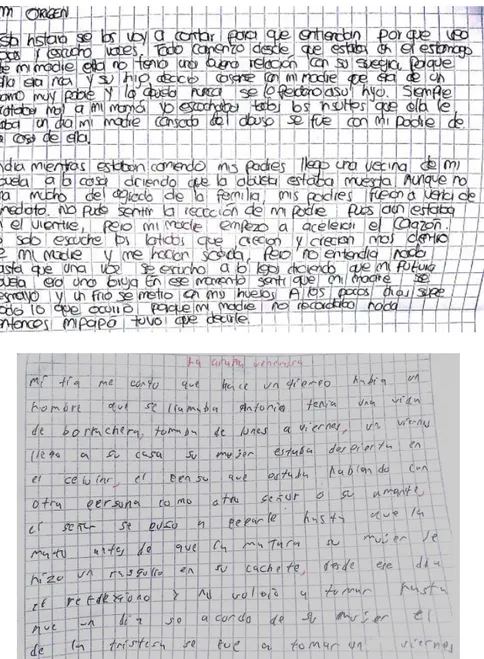 mi ORIGEN
Esta historia se las voy a contar para que entiendan por que veo
cosas y escucho voces. Todo comenzo desde que estaba en el estomago
de mi madre ella no tenia una buena relación con su suegra, porque
ella era rica y su hijo decidio casarse con mi madre que era de un
ramo muy pobre y la abuela nunca se lo perdono a su hijo. Siempre
trataba mal a mi mamá yo escuchaba todos los insultos que ella le
daba un dia mi madre cansada del abuso se fue con mi padre de
la casa de ella.
Un dia mientras estaban comiendo mis padres llego una vecina de mi
abuela a la casa diciendo que la abuela estaba muerta Aunque no
era mucho del agrado de la familia, mis padres fueron a verla de
inmediato. No pude sentir la reacción de mi padre pues aun estaba
en el vientre, pero mi madre empezo a acelerar el corazon.
yo solo escuche los latidos que crecian y crecian mas dentro
de mi madre y me hacian sorda, pero no entendia nada
hasta que una voz se escucho a lo lejos diciendo que mi futura
abuela era una bruja En ese momento senti que mi madre se
desmayo y un frio se metio en mis huesos A los pocos dias supe
todo lo que ocurrio porque mi madre no recordaba nada
entonces mi papá tuvo que decirle.
La araña
Mi tia me conto que hace un tiempo habia un
hombre que se llamaba Antonio tenia una vida
de borrachera, tomaba de lunes a viernes, un viernes
llego a su casa su mujer estaba despierta en
el el penso que estaba hablando con
otra persona como otro señor o su amante,
el señor se puso a pegarle hasta que la
mato antes de que la matara su mujer le
hizo un rasguño en su cachete, desde ese dia
el reflexiono y no volvio a tomar hasta
que un dia se acordo de su mujer el
de la tristeza se fue a tomar un viernes